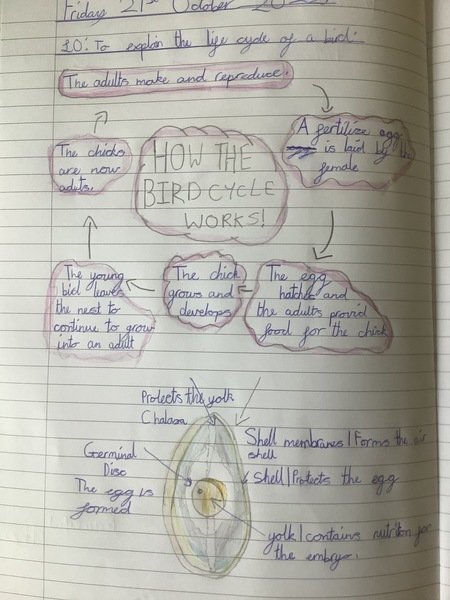 Friday 21st October
LO: To explain the life cycle of a bird.
The adults make and reproduce.
A fertilize egg
is laid by the
female
The egg
hatches and
the adults provid
food for the chick
The chick
grows and
develops
The young
bid leaves
the nest to
continue to grow
into an adult
The chicks
are now
adults.
HOW THE
BIRD CYCLE
WORKS!
Protects the yolk
Chalaza
Shell membranes | Forms the air
shell
Shell | Protects the egg
yolk | contains nutrition for
the embryo.
Germinal
Disc
The egg is
formed